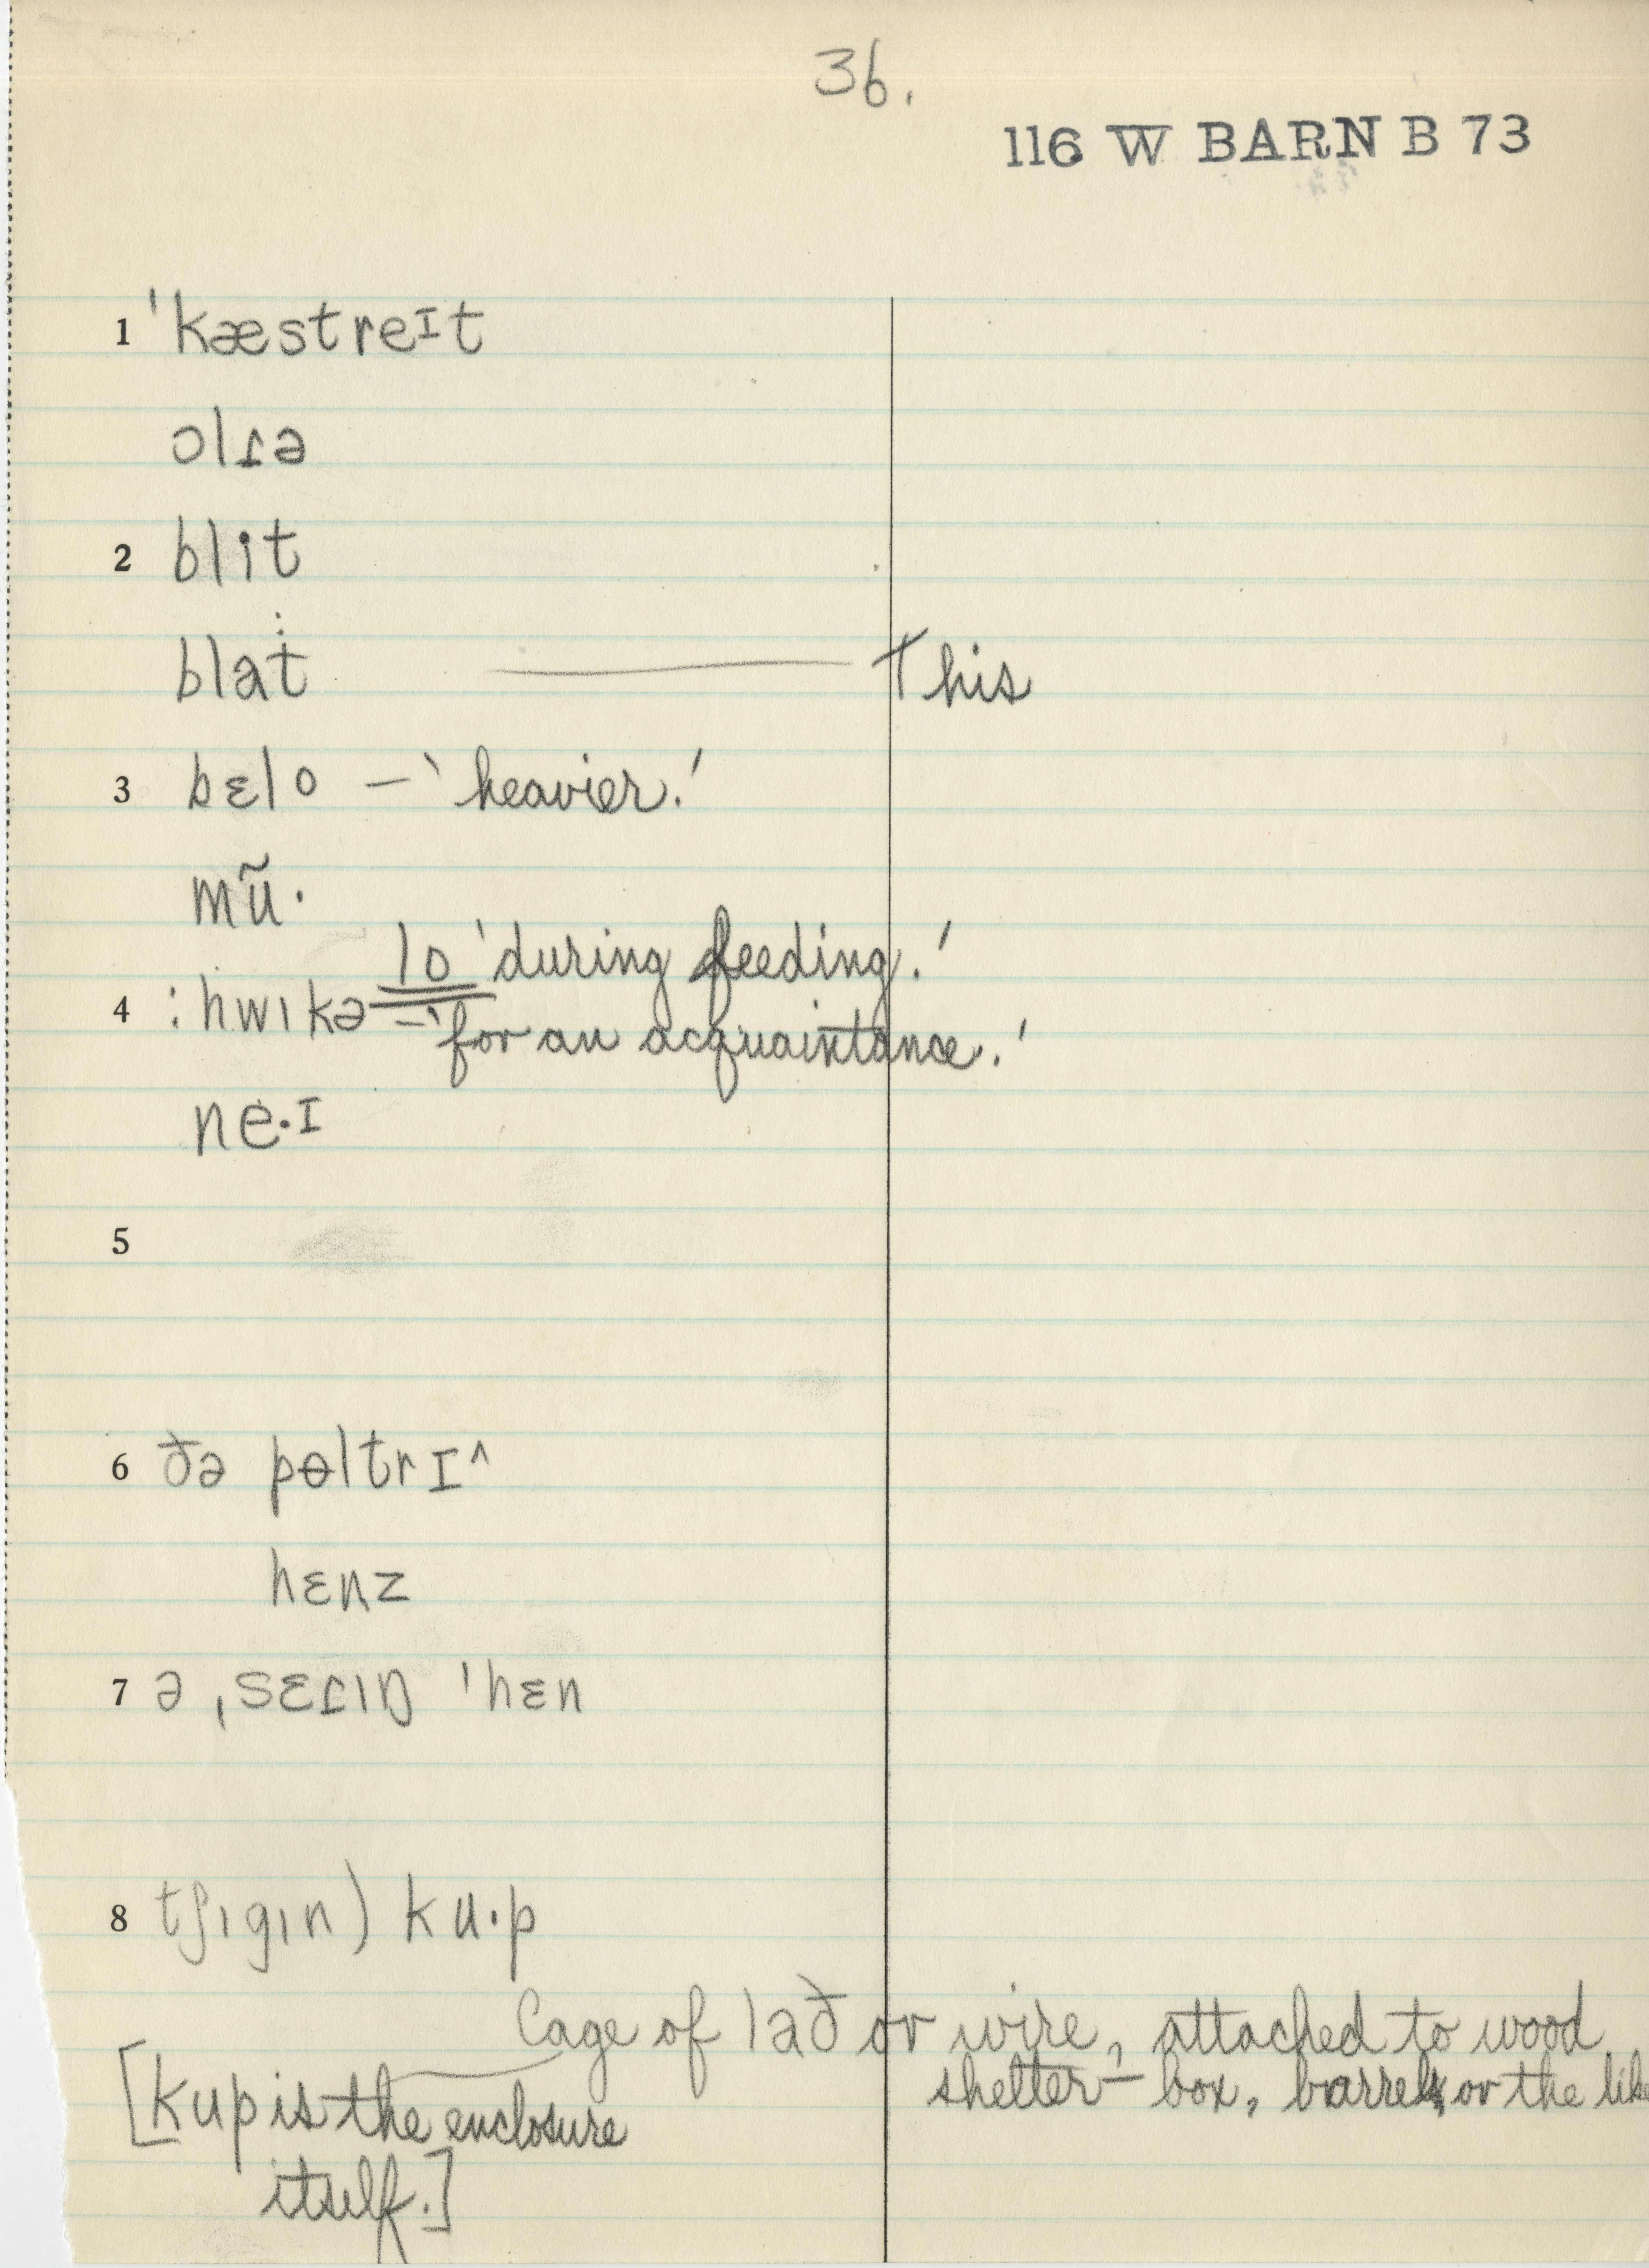 36.
116 W BARN B 73
1 ˈkæstreɪt
ɔlɾə
2 blit
blat ——— This
3 bɛlo – 'heavier.'
mũ·
lo 'during feeding.'
4 :hwɪkə – 'for an acquaintance.'
ne·ɪ
5
6 ðə pɵltrɪ^
hɛnz
7 ə ˌsɛɾɪŋ ˈhɛn
8 tʃɪgɪn) ku·p
Cage of lað or wire, attached to wood
shelter – box, barrel, or the like
[kup is the enclosure
itself.]